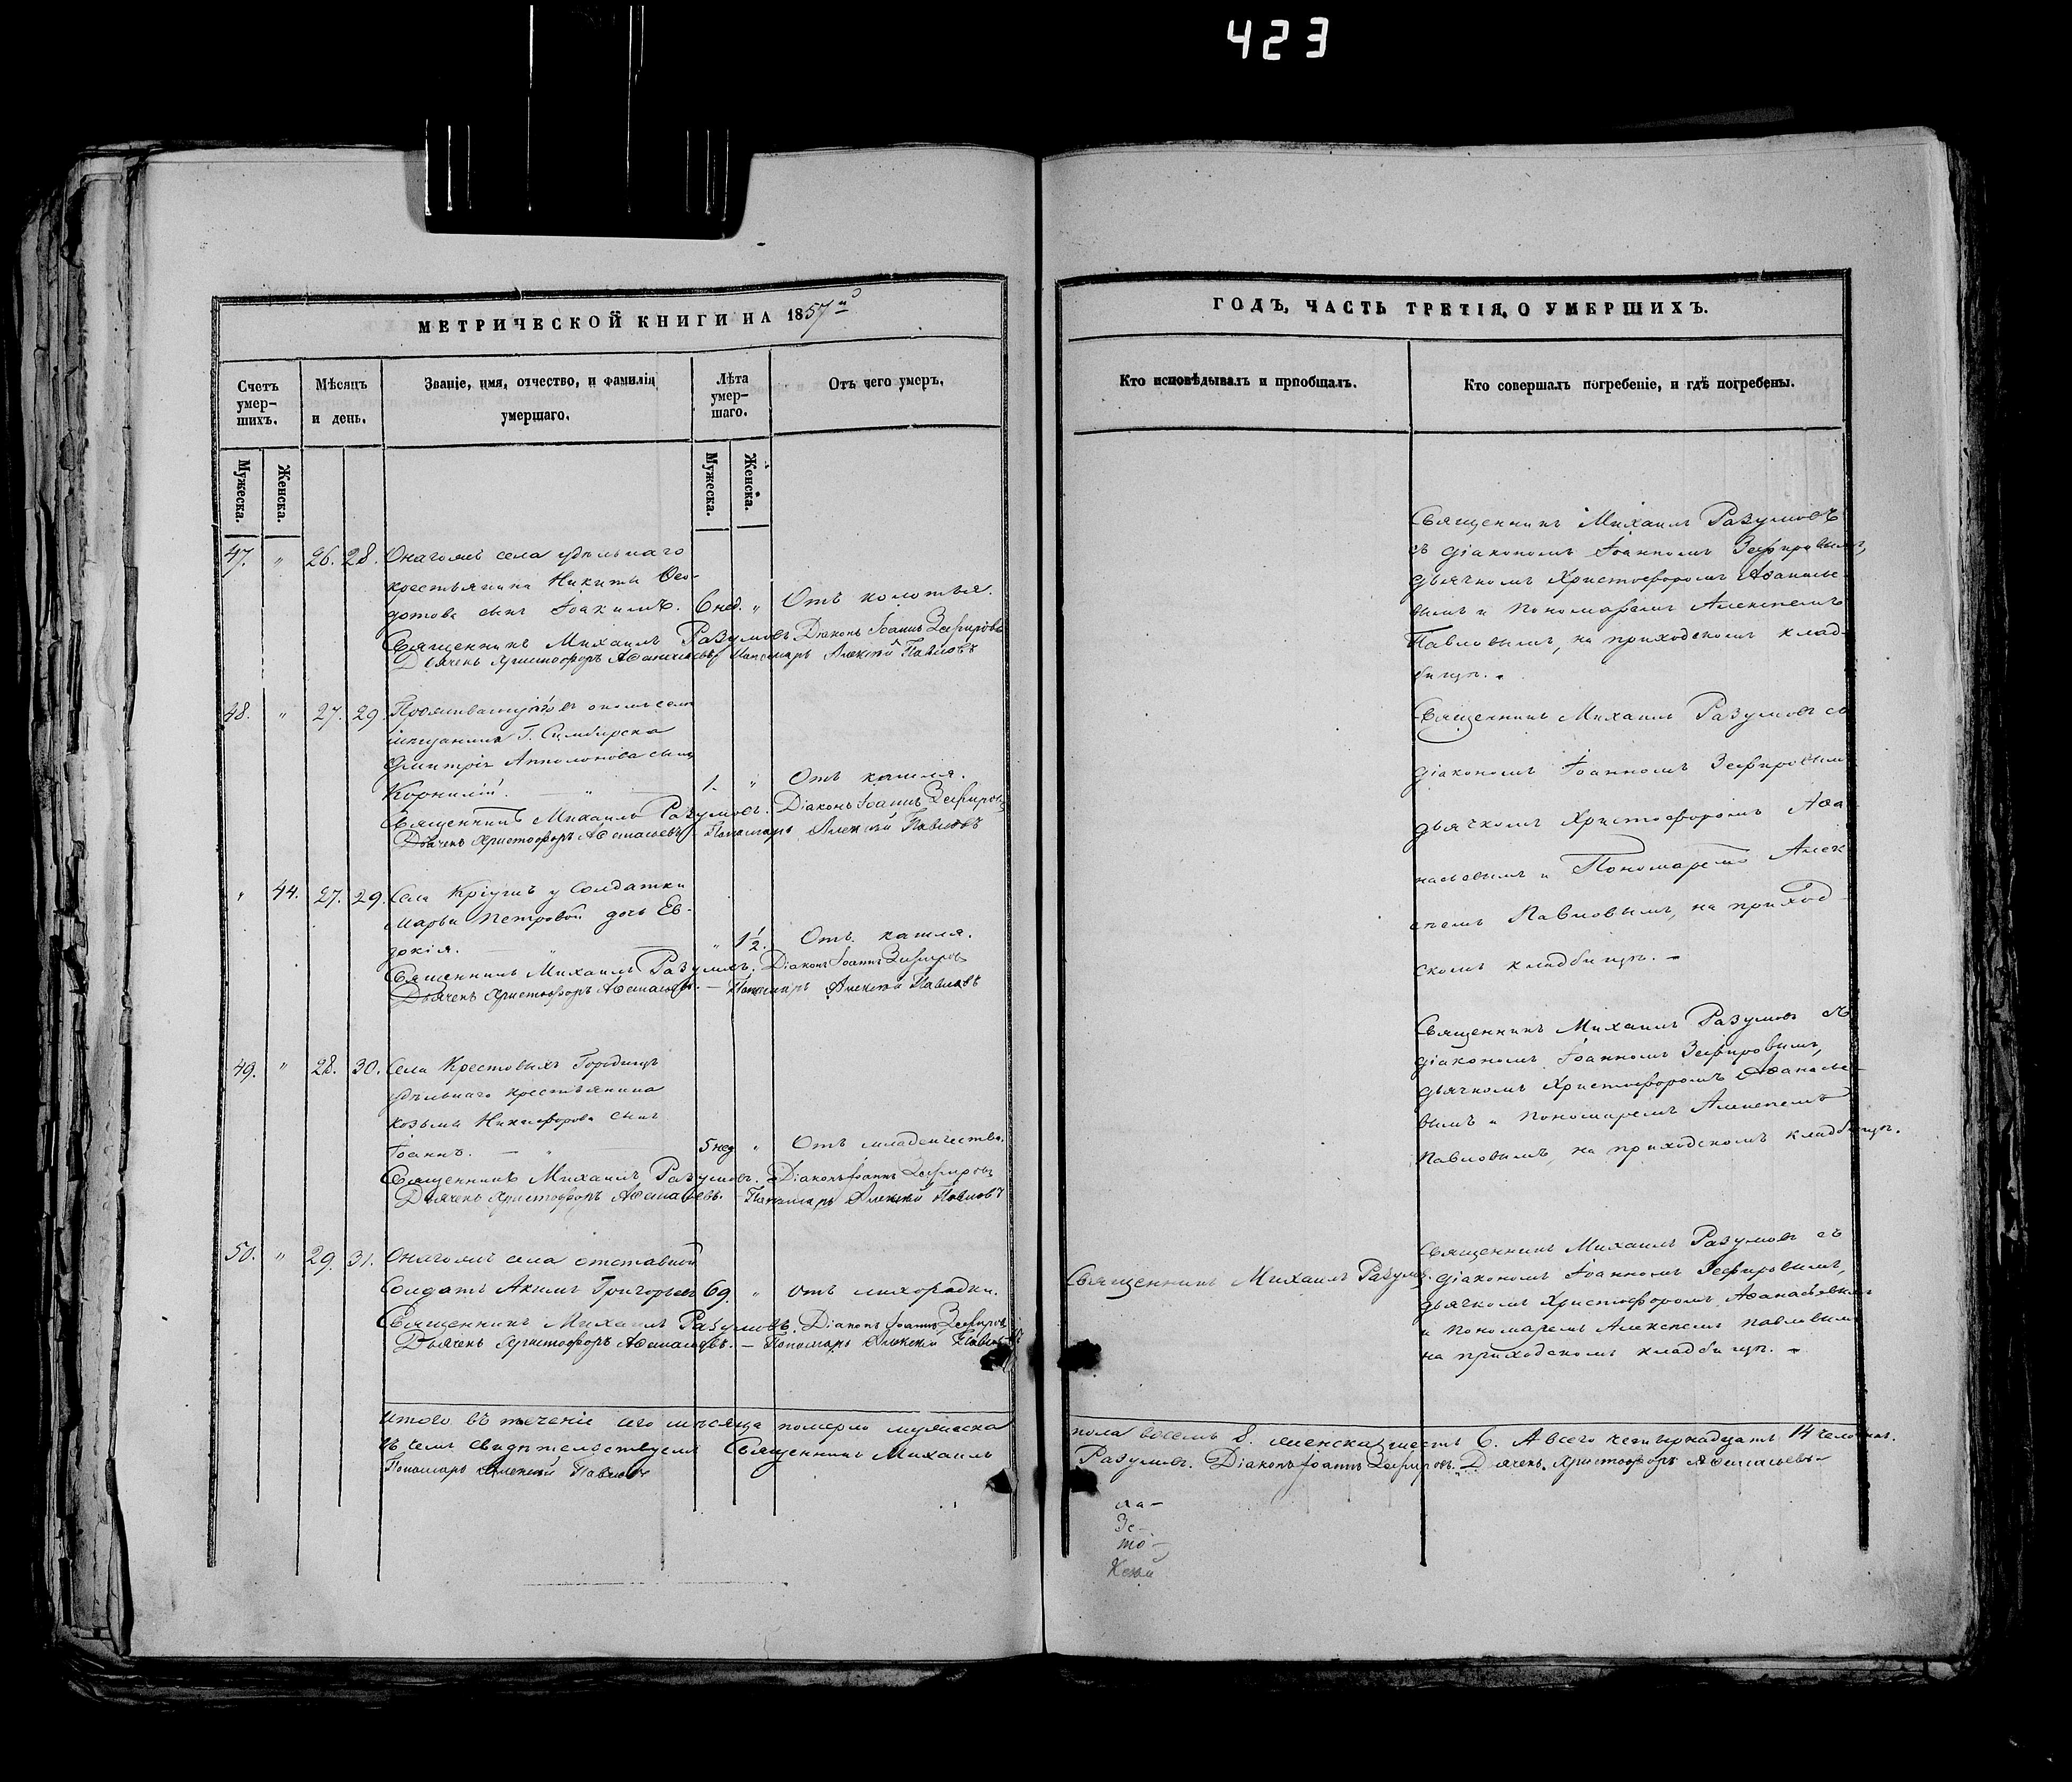 423
МЕТРИЧЕСКОЙ КНИГИ НА 1857й
Счетъ умер-шихъ.
Мѣсяцъ и день.
Званіе, имя, отчество, и фамилія умершаго.
Лѣта умер-шаго.
Отъ чего умеръ.
Мужеска. Женска. Мужеска. Женска.
47. " 26. 28. Онагожъ села удѣльнаго
крестьянина Никиты Ѳео-
дотова сынъ Іоакимъ. 6 нед. " Отъ колотья.
Священникъ Михаилъ Разумовъ. Діаконъ Іоаннъ Зефировъ
Дьячекъ Христофоръ Аѳанасьевъ Пономарь Алексѣй Павловъ
48. " 27. 29. Проживающаго въ ономъ селѣ
мѣщанина Г. Симбирска
Дмитрія Апполонова сынъ
Корнилій. — " — 1. " Отъ кашля.
Священникъ Михаилъ Разумовъ. Діаконъ Іоаннъ Зефировъ
Дьячекъ Христофоръ Аѳанасьевъ Пономарь Алексѣй Павловъ
" 44. 27. 29. Села Кріушъ у Солдатки
Марьи Петровой дочь Ев-
докія. — " — " 1½. Отъ кашля.
Священникъ Михаилъ Разумовъ. Діаконъ Іоаннъ Зефировъ
Дьячекъ Христофоръ Аѳанасьевъ. — Пономарь Алексѣй Павловъ
49. " 28. 30. Села Крестовыхъ Городищъ
удѣльнаго крестьянина
Козьмы Никифорова сынъ
Іоаннъ. — " — 5 нед " Отъ младенчества.
Священникъ Михаилъ Разумовъ. Діаконъ Іоаннъ Зефировъ
Дьячекъ Христофоръ Аѳанасьевъ. — Пономарь Алексѣй Павловъ
50. " 29. 31. Онагожъ села отставной
Солдатъ Акимъ Григорьевъ 69. " отъ лихорадки.
Священникъ Михаилъ Разумовъ. Діаконъ Іоаннъ Зефировъ
Дьячекъ Христофоръ Аѳанасьевъ. — Пономарь Алексѣй Павловъ
Итого въ теченіе сего мѣсяца померло мужеска
въ чемъ свидѣтельствуемъ Священникъ Михаилъ
Пономарь Алексѣй Павловъ
ГОДЪ, ЧАСТЬ ТРЕТІЯ, О УМЕРШИХЪ.
Кто исповѣдывалъ и пріобщалъ.
Кто совершалъ погребеніе, и гдѣ погребены.
Священникъ Михаилъ Разумовъ
съ діакономъ Іоанномъ Зефировымъ,
дьячкомъ Христофоромъ Аѳанасье-
вымъ и Пономаремъ Алексѣемъ
Павловымъ, на приходскомъ клад-
бищѣ.
Священникъ Михаилъ Разумовъ съ
діакономъ Іоанномъ Зефировымъ
дьячкомъ Христофоромъ Аѳа-
насьевымъ и Пономаремъ Алек-
сѣемъ Павловымъ, на приход-
скомъ кладбищѣ. —
Священникъ Михаилъ Разумовъ съ
діакономъ Іоанномъ Зефировымъ,
дьячкомъ Христофоромъ Аѳанасье-
вымъ и Пономаремъ Алексѣемъ
Павловымъ, на приходскомъ кладбищѣ.
Священникъ Михаилъ Разумовъ съ
Священникъ Михаилъ Разумов. діакономъ Іоанномъ Зефировымъ,
дьячкомъ Христофоромъ Аѳанасьевымъ
и Пономаремъ Алексѣемъ Павловымъ
на приходскомъ кладбищѣ. —
пола восемь 8. женска шесть 6. А всего четырнадцать 14 человѣкъ.
Разумовъ. Діаконъ Іоаннъ Зефировъ. Дьячекъ Христофоръ Аѳанасьевъ —
ла-
Зе-
то-